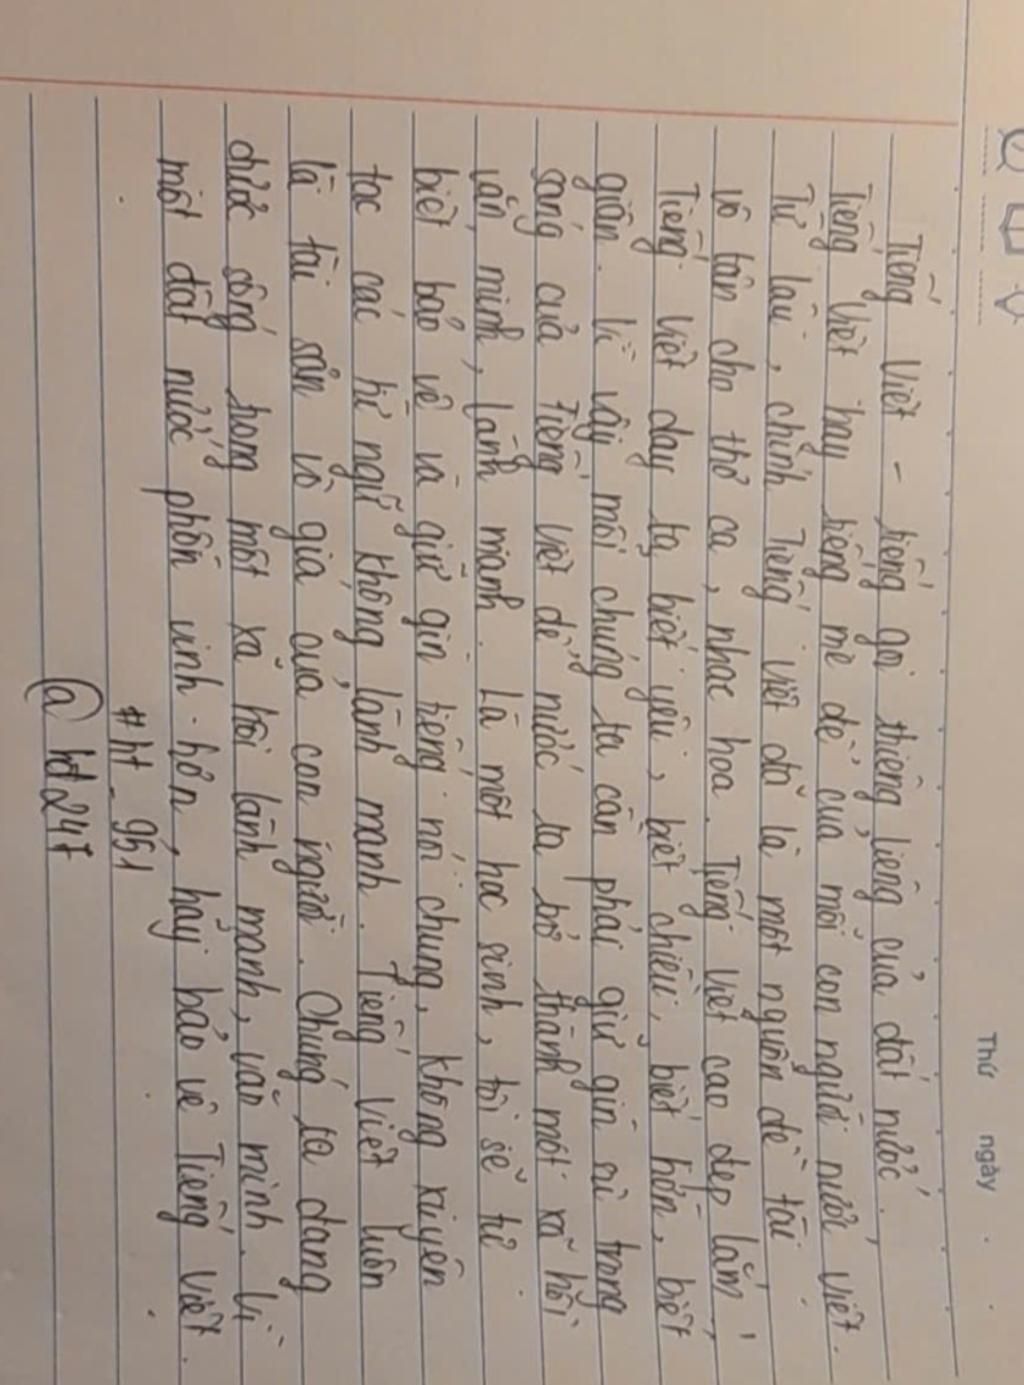 Thứ ngày
Tiếng Việt - tiếng gọi thiêng liêng của đất nước.
Tiếng Việt hay tiếng mẹ đẻ của mỗi con người nước Việt.
Từ lâu, chính Tiếng Việt đã là một nguồn đề tài
vô tận cho thơ ca, nhạc hoạ. Tiếng Việt cao đẹp lắm,
Tiếng Việt dạy ta biết yêu, biết chiều, biết hờn, biết
giận. Vì vậy mỗi chúng ta cần phải giữ gìn sự trong
sáng của Tiếng Việt để nước ta trở thành một xã hội
văn minh, lành mạnh. Là một học sinh, tôi sẽ tự
biết bảo vệ và giữ gìn tiếng nói chung, không xuyên
tạc các từ ngữ không lành mạnh. Tiếng Việt luôn
là tài sản vô giá của con người. Chúng ta đang
được sống trong một xã hội lành mạnh, văn minh. Vì
một đất nước phồn vinh hơn, hãy bảo vệ Tiếng Việt.
#ht_951
@hd247